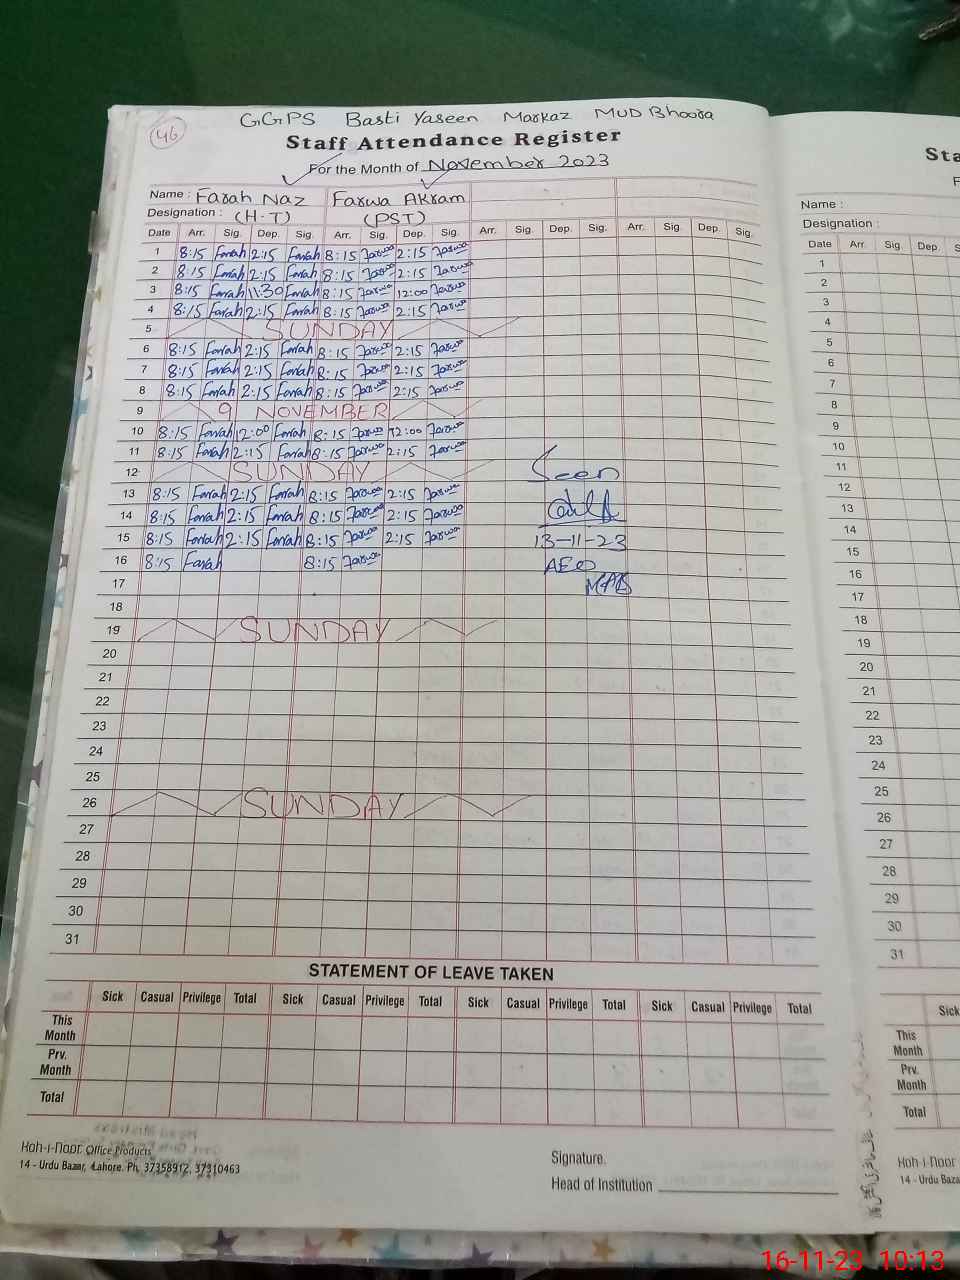 46
GGPS Basti Yaseen Markaz MUD Bhoora
Staff Attendance Register
For the Month of November 2023
Name : Farah Naz Farwa Akram
Designation : (H.T) (PST)
Date Arr. Sig. Dep. Sig. Arr. Sig. Dep. Sig. Arr. Sig. Dep. Sig. Arr. Sig. Dep. Sig.
1 8:15 Farah 2:15 Farah 8:15 Farwa 2:15 Farwa
2 8:15 Farah 2:15 Farah 8:15 Farwa 2:15 Farwa
3 8:15 Farah 11:30 Farah 8:15 Farwa 12:00 Farwa
4 8:15 Farah 2:15 Farah 8:15 Farwa 2:15 Farwa
5 SUNDAY
6 8:15 Farah 2:15 Farah 8:15 Farwa 2:15 Farwa
7 8:15 Farah 2:15 Farah 8:15 Farwa 2:15 Farwa
8 8:15 Farah 2:15 Farah 8:15 Farwa 2:15 Farwa
9 9 NOVEMBER
10 8:15 Farah 12:00 Farah 8:15 Farwa 12:00 Farwa
11 8:15 Farah 2:15 Farah 8:15 Farwa 2:15 Farwa
12 SUNDAY Seen
13 8:15 Farah 2:15 Farah 8:15 Farwa 2:15 Farwa
14 8:15 Farah 2:15 Farah 8:15 Farwa 2:15 Farwa
15 8:15 Farah 2:15 Farah 8:15 Farwa 2:15 Farwa 13-11-23
16 8:15 Farah 8:15 Farwa AEO
17
18
19 SUNDAY
20
21
22
23
24
25
26 SUNDAY
27
28
29
30
31
STATEMENT OF LEAVE TAKEN
Sick Casual Privilege Total Sick Casual Privilege Total Sick Casual Privilege Total Sick Casual Privilege Total
This Month
Prv. Month
Total
Koh-i-Noor Office Products
14 - Urdu Bazar, Lahore. Ph. 37358912, 37310463
Signature.
Head of Institution
Sta
F
Name :
Designation :
Date Arr. Sig. Dep. S
1
2
3
4
5
6
7
8
9
10
11
12
13
14
15
16
17
18
19
20
21
22
23
24
25
26
27
28
29
30
31
Sick
This Month
Prv. Month
Total
Koh-i-Noor
14 - Urdu Baza
16-11-23 10:13